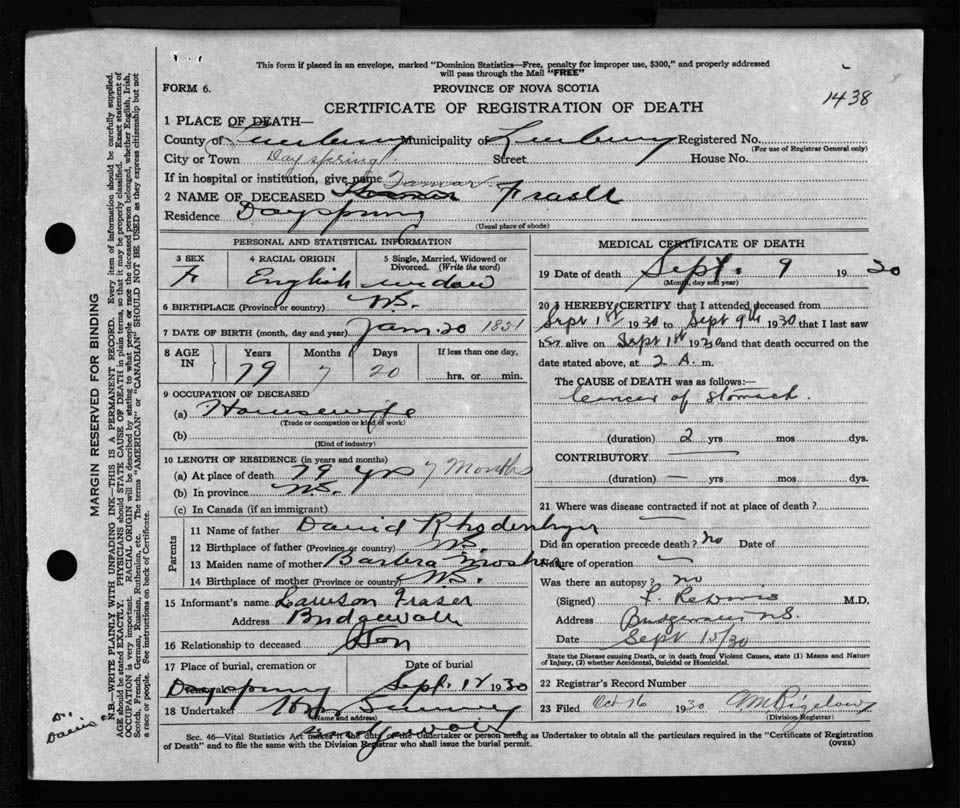 This form if placed in an envelope, marked "Dominion Statistics—Free, penalty for improper use, $300," and properly addressed
will pass through the Mail "FREE"
FORM 6.
PROVINCE OF NOVA SCOTIA
1438
CERTIFICATE OF REGISTRATION OF DEATH
1 PLACE OF DEATH—
County of Lunenburg Municipality of Lunenburg Registered No.
(For use of Registrar General only)
City or Town Dayspring Street House No.
If in hospital or institution, give name
2 NAME OF DECEASED Fraser
Residence Dayspring
(Usual place of abode)
PERSONAL AND STATISTICAL INFORMATION
3 SEX 4 RACIAL ORIGIN 5 Single, Married, Widowed or
Divorced. (Write the word)
F English widow
6 BIRTHPLACE (Province or country) N.S.
7 DATE OF BIRTH (month, day and year) Jan. 20 1851
8 AGE IN Years Months Days If less than one day,
79 7 20 hrs. or min.
9 OCCUPATION OF DECEASED
(a) Housewife
(Trade or occupation or kind of work)
(b)
(Kind of industry)
10 LENGTH OF RESIDENCE (in years and months)
(a) At place of death 79 yrs 7 Months
(b) In province N.S.
(c) In Canada (if an immigrant)
Parents
11 Name of father David Rhodenhyer
12 Birthplace of father (Province or country) N.S.
13 Maiden name of mother Barbera
14 Birthplace of mother (Province or country) N.S.
15 Informant's name Lawson Fraser
Address Bridgewater
16 Relationship to deceased Son
17 Place of burial, cremation or Date of burial
Dayspring Sept. 12 1930
18 Undertaker
(Name and address)
Bridgewater
MEDICAL CERTIFICATE OF DEATH
19 Date of death Sept. 9 19 30
(Month, day and year)
20 I HEREBY CERTIFY that I attended deceased from
Sept 1st 1930 to Sept 9th 1930 that I last saw
her alive on Sept 1st 1930 and that death occurred on the
date stated above, at 2 A. m.
The CAUSE OF DEATH was as follows:—
Cancer of Stomach.
(duration) 2 yrs mos dys.
CONTRIBUTORY
(duration) — yrs mos dys.
21 Where was disease contracted if not at place of death? —
Did an operation precede death? no Date of
Nature of operation —
Was there an autopsy? no
(Signed) M.D.
Address Bridgewater N.S.
Date Sept 15/30
State the Disease causing Death, or in death from Violent Causes, state (1) Means and Nature
of Injury, (2) whether Accidental, Suicidal or Homicidal.
22 Registrar's Record Number
23 Filed Oct 16 1930 Bigelow
(Division Registrar)
Sec. 46—Vital Statistics Act makes it the duty of the Undertaker or person acting as Undertaker to obtain all the particulars required in the "Certificate of Registration
of Death" and to file the same with the Division Registrar who shall issue the burial permit. (OVER)
MARGIN RESERVED FOR BINDING
N.B.—WRITE PLAINLY WITH UNFADING INK—THIS IS A PERMANENT RECORD. Every item of information should be carefully supplied.
AGE should be stated EXACTLY. PHYSICIANS should STATE CAUSE OF DEATH in plain terms, so that it may be properly classified. Exact statement of
OCCUPATION is very important. RACIAL ORIGIN will be described by stating to what people or race the deceased person belonged, whether English, Irish,
Scotch, French, German, Russian, Ruthenian, etc. The terms "AMERICAN" or "CANADIAN" SHOULD NOT BE USED as they express citizenship but not
a race or people. See instructions on back of Certificate.
Dr.
Davis